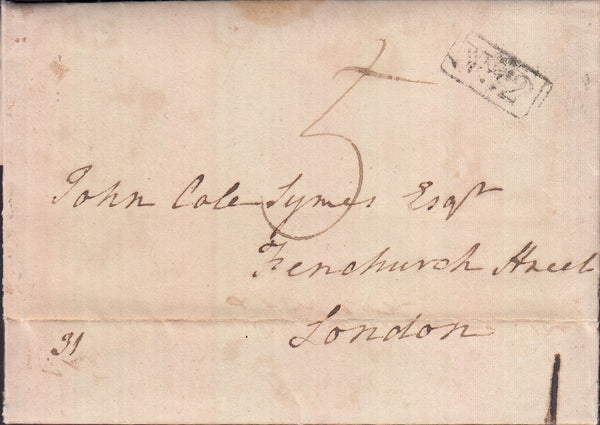 5
No.2
John Cole Symes Esqr
Fenchurch Street
London
31
1